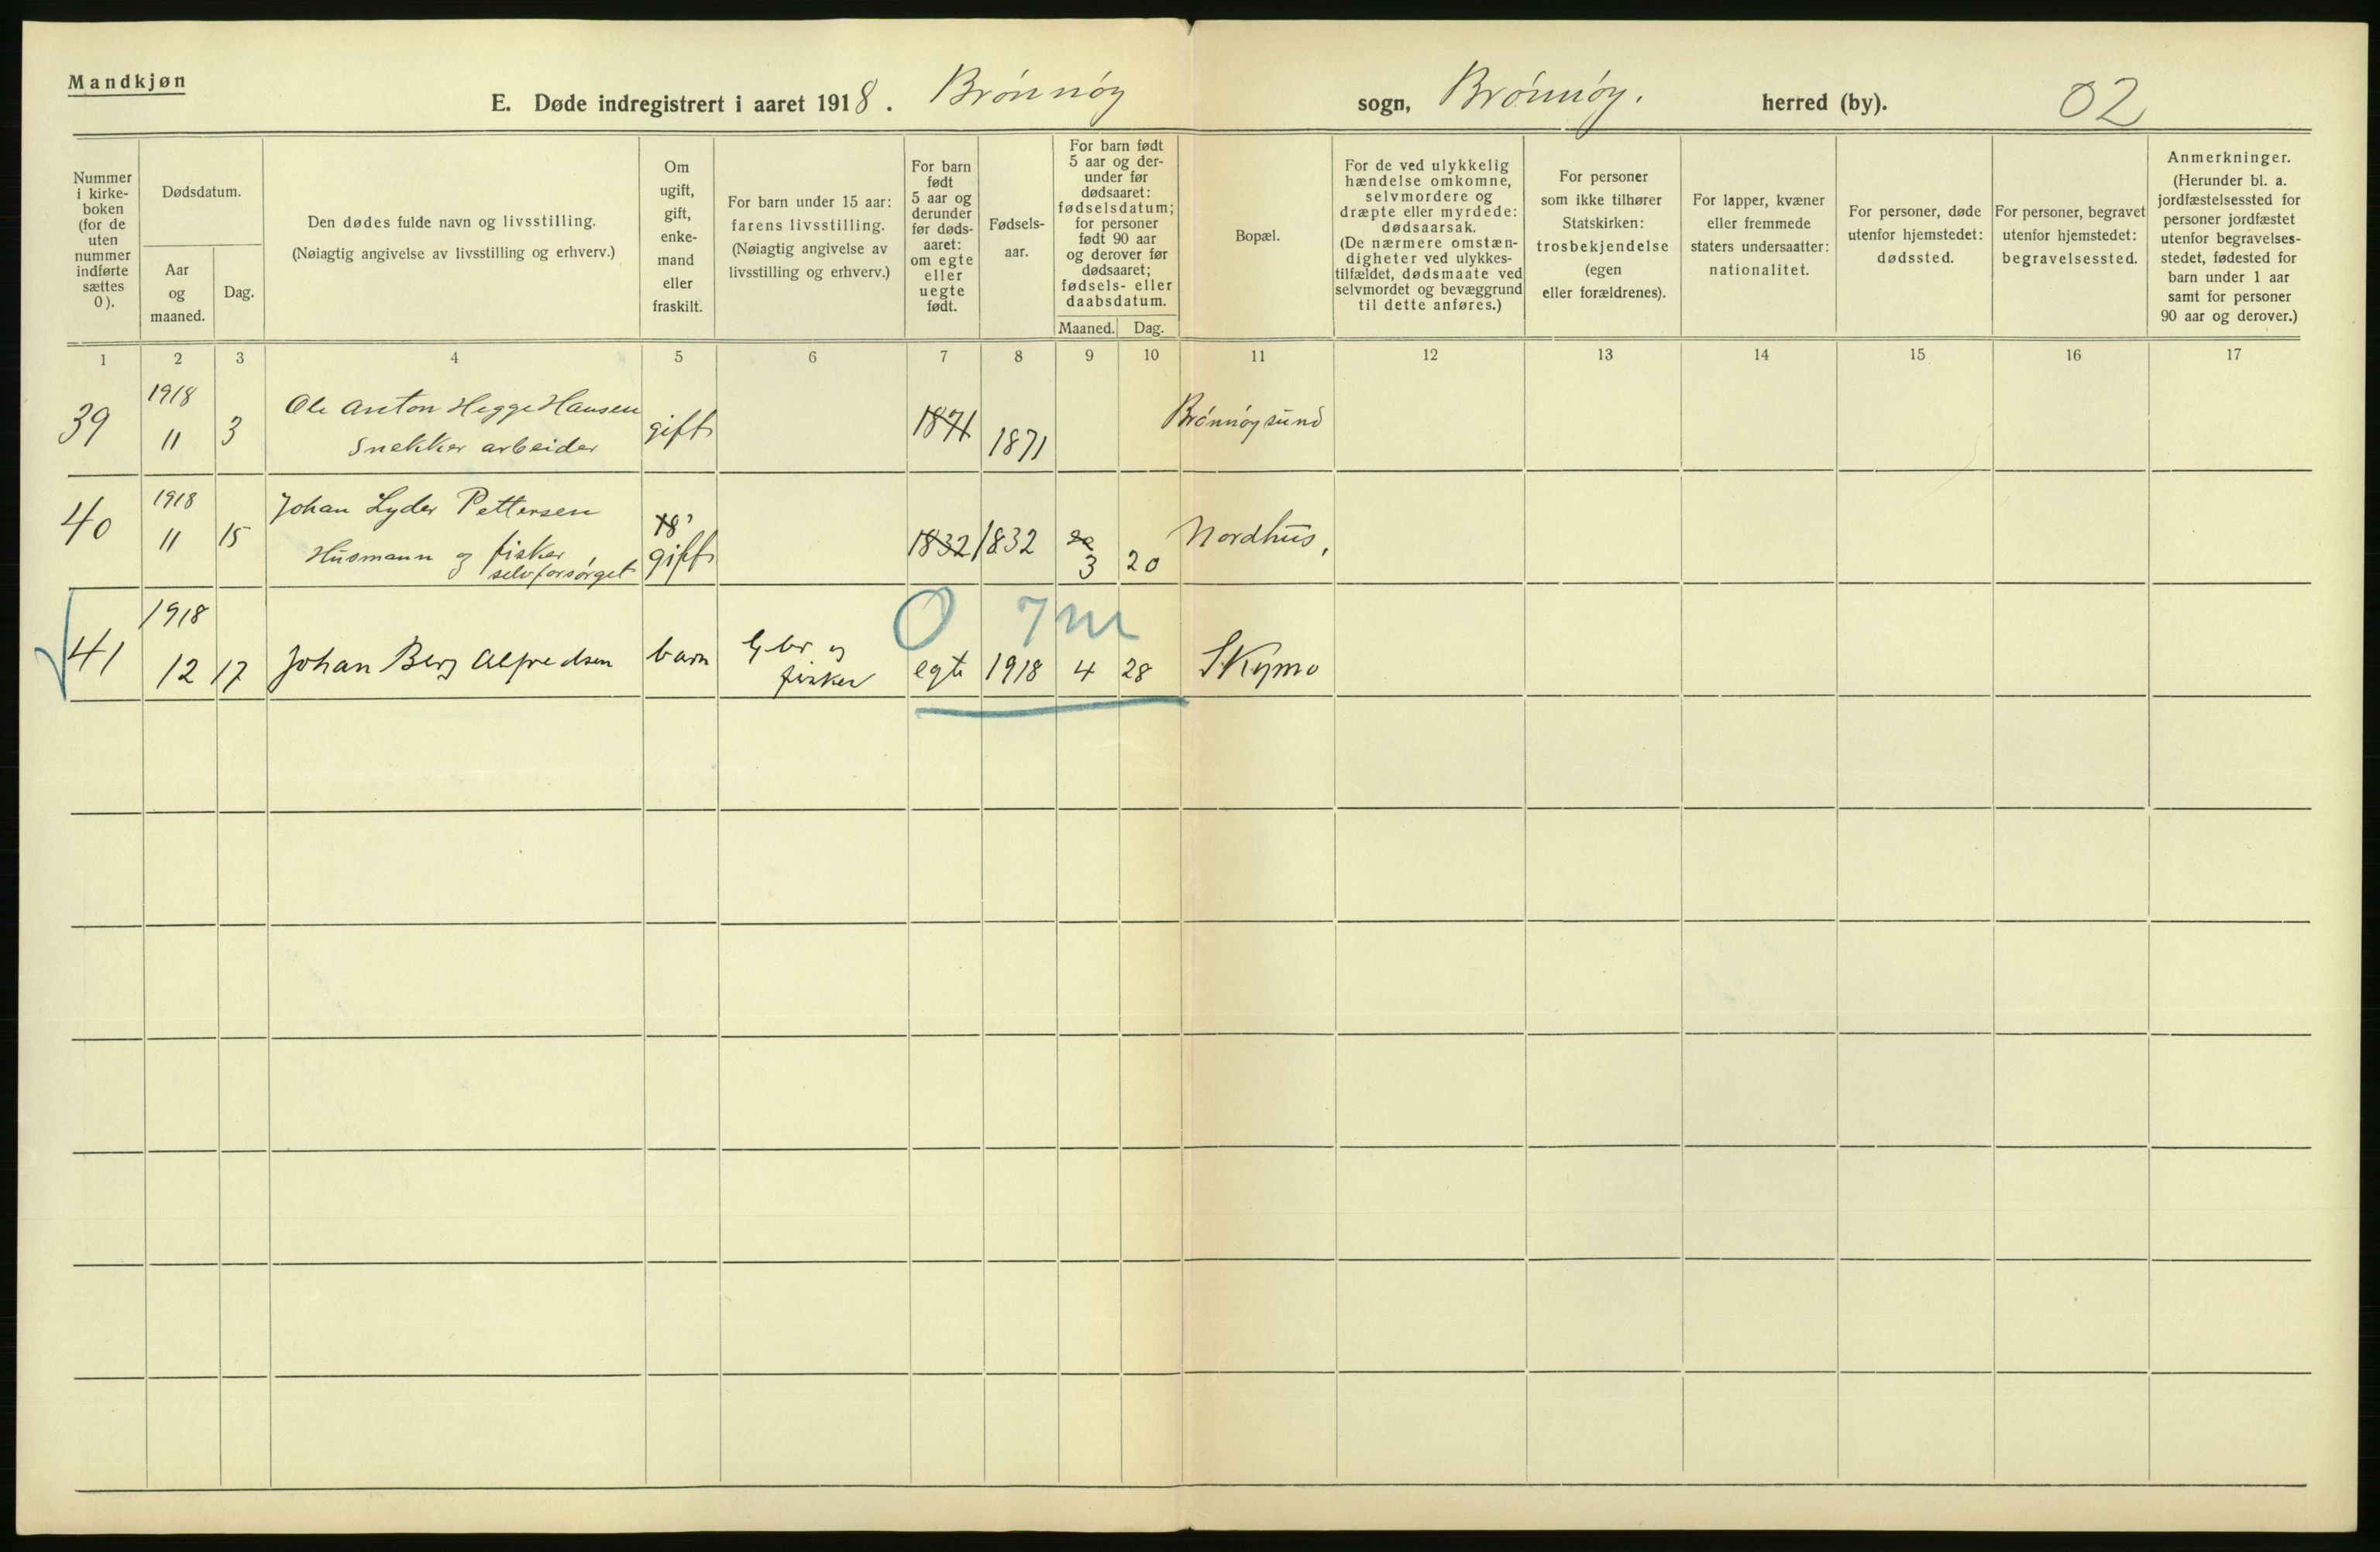 Mandkjøn
E. Døde indregistrert i aaret 1918. Brønnøy sogn, Brønnøy. herred (by). 02
Nummer
i kirke-
boken
(for de
uten
nummer
indførte
sættes
0).
Dødsdatum.
Aar
og
maaned.
Dag.
Den dødes fulde navn og livsstilling.
(Nøiagtig angivelse av livsstilling og erhverv.)
Om
ugift,
gift,
enke-
mand
eller
fraskilt.
For barn under 15 aar:
farens livsstilling.
(Nøiagtig angivelse av
livsstilling og erhverv.)
For barn
født
5 aar og
derunder
før døds-
aaret:
om egte
eller
uegte
født.
Fødsels-
aar.
For barn født
5 aar og der-
under før
dødsaaret:
fødselsdatum;
for personer
født 90 aar
og derover før
dødsaaret;
fødsels- eller
daabsdatum.
Maaned. Dag.
Bopæl.
For de ved ulykkelig
hændelse omkomne,
selvmordere og
dræpte eller myrdede:
dødsaarsak.
(De nærmere omstæn-
digheter ved ulykkes-
tilfældet, dødsmaate ved
selvmordet og bevæggrund
til dette anføres.)
For personer
som ikke tilhører
Statskirken:
trosbekjendelse
(egen
eller forældrenes).
For lapper, kvæner
eller fremmede
staters undersaatter:
nationalitet.
For personer, døde
utenfor hjemstedet:
dødssted.
For personer, begravet
utenfor hjemstedet:
begravelsessted.
Anmerkninger.
(Herunder bl. a.
jordfæstelsessted for
personer jordfæstet
utenfor begravelses-
stedet, fødested for
barn under 1 aar
samt for personer
90 aar og derover.)
1 2 3 4 5 6 7 8 9 10 11 12 13 14 15 16 17
39
1918
11
3
Ole Anton Hegge Hansen
Snekker arbeider
gift
1871
1871
Brønnøysund
40
1918
11
15
Johan Lyder Pettersen
Husmann og fisker
selvforsørget
18
gift
1832
1832
3
20
Nordhus,
0 7 m
41
1918
12
17
Johan Berg Alfredsen
barn
Gbr og
fisker
egte
1918
4
28
Skymo